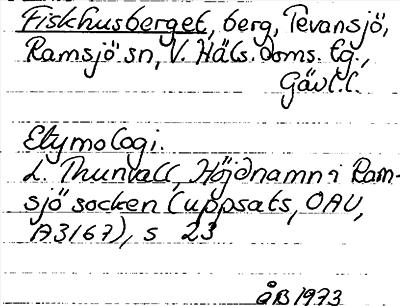 Fiskhusberget, berg, Tevansjö,
Ramsjö sn, V. Häls. doms. tg.,
Gävl. l.
Etymologi.
L. Thunvall, Höjdnamn i Ram-
sjö socken (uppsats, OAU,
A3167), s 23
ÅB 1973